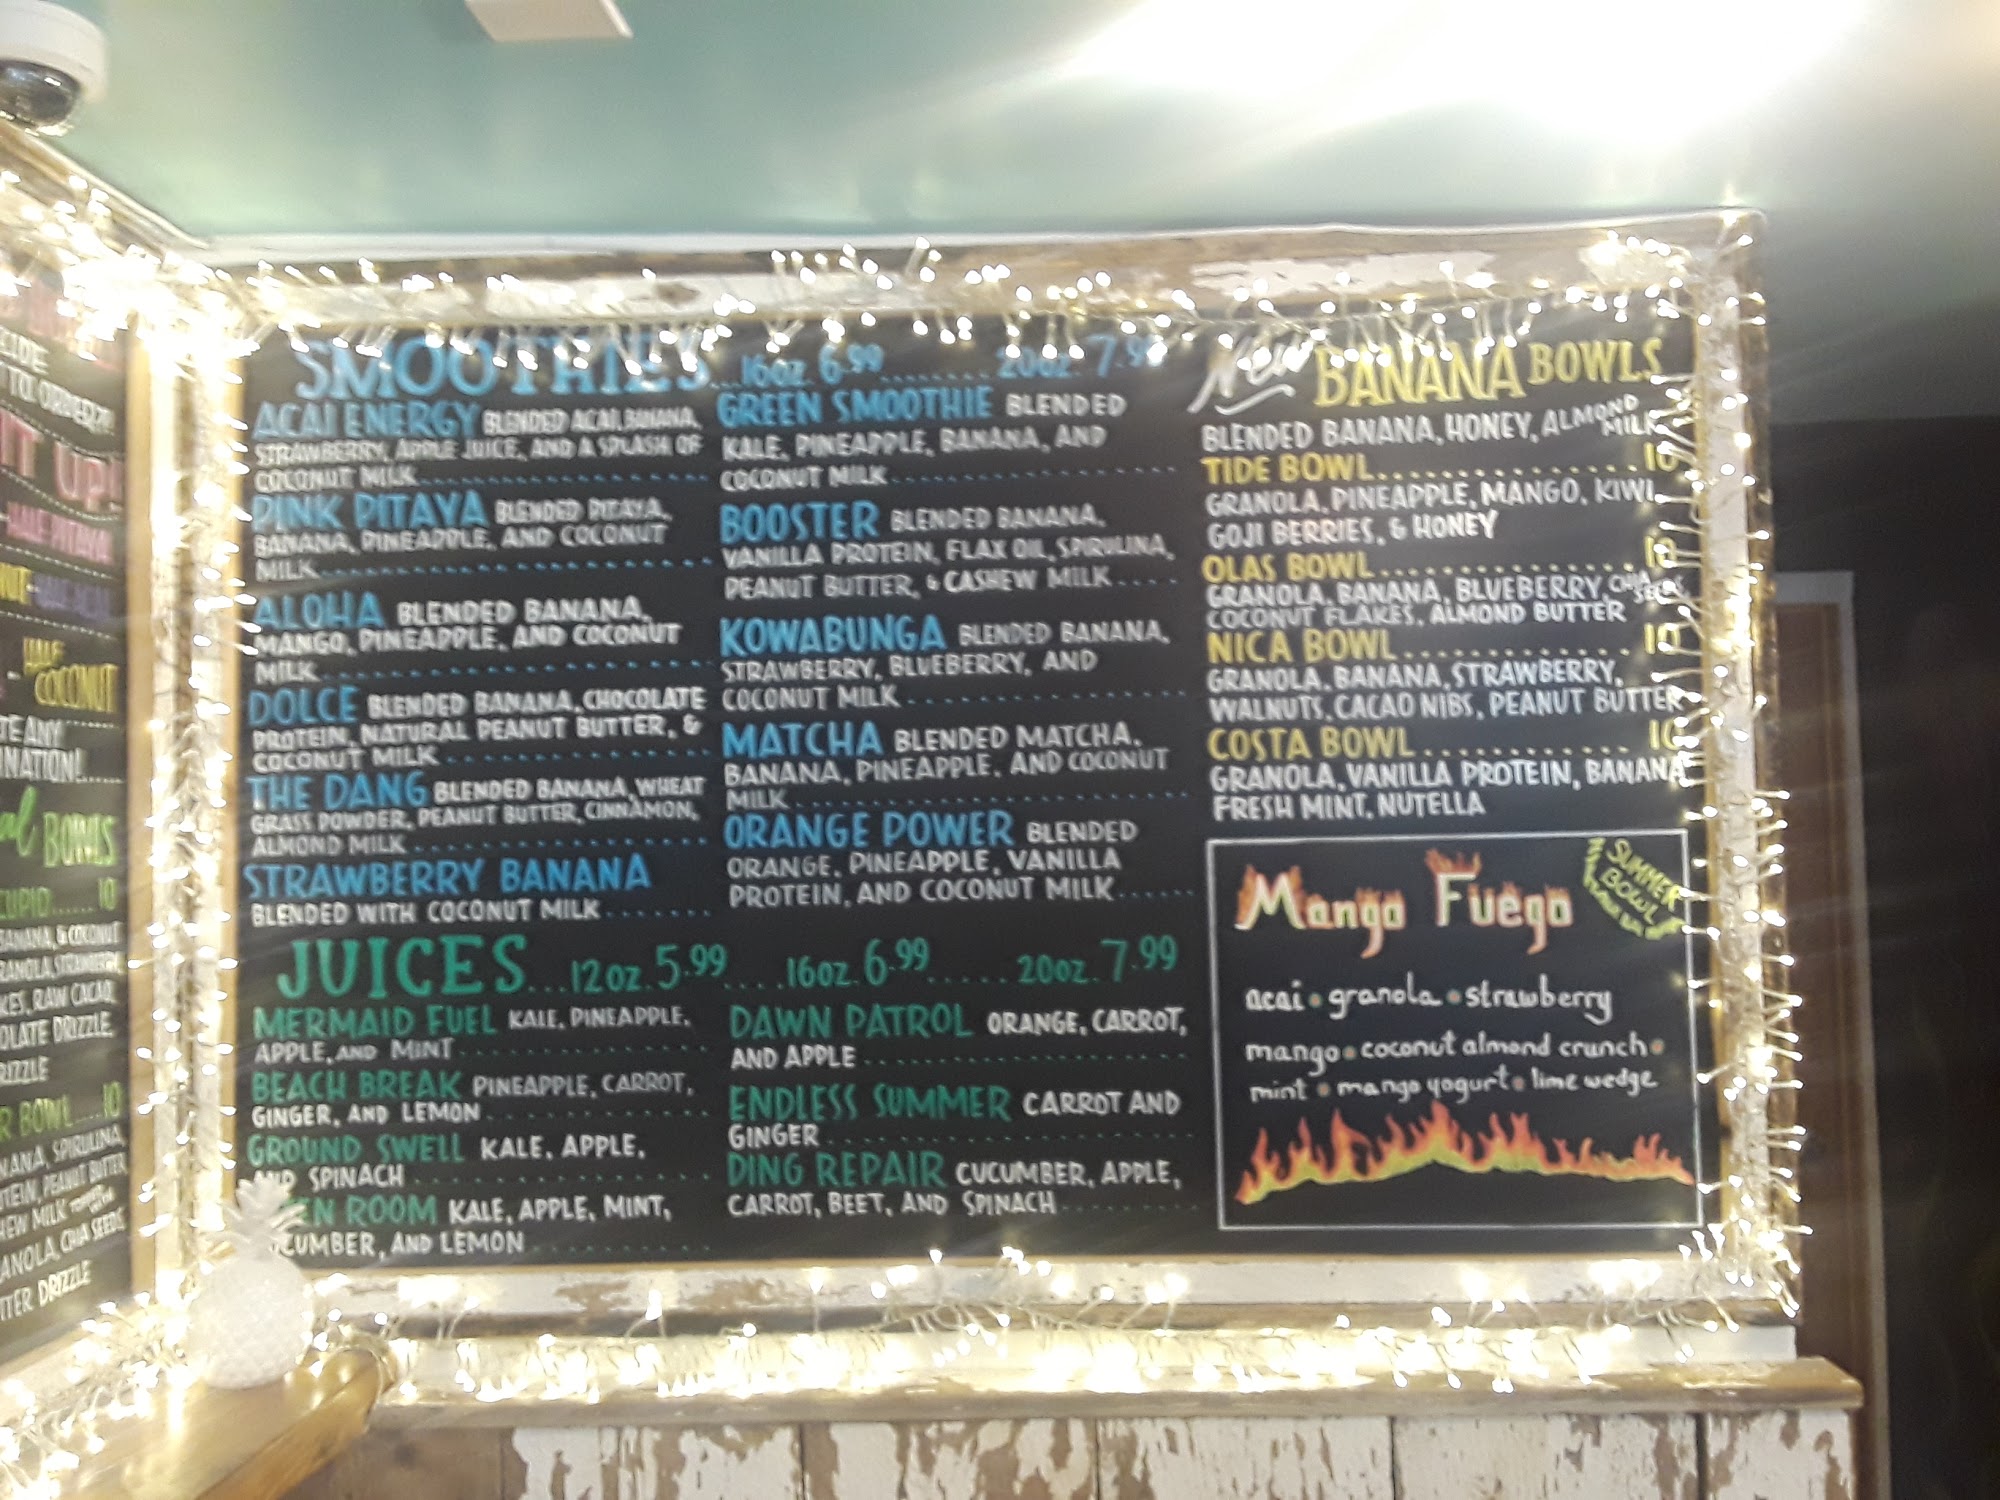 SMOOTHIES...16oz. 6.99........20oz. 7.99
ACAI ENERGY BLENDED ACAI, BANANA,
STRAWBERRY, APPLE JUICE, AND A SPLASH OF
COCONUT MILK
PINK PITAYA BLENDED PITAYA,
BANANA, PINEAPPLE, AND COCONUT
MILK
ALOHA BLENDED BANANA,
MANGO, PINEAPPLE, AND COCONUT
MILK
DOLCE BLENDED BANANA, CHOCOLATE
PROTEIN, NATURAL PEANUT BUTTER, &
COCONUT MILK
THE DANG BLENDED BANANA, WHEAT
GRASS POWDER, PEANUT BUTTER, CINNAMON,
ALMOND MILK
STRAWBERRY BANANA
BLENDED WITH COCONUT MILK
GREEN SMOOTHIE BLENDED
KALE, PINEAPPLE, BANANA, AND
COCONUT MILK
BOOSTER BLENDED BANANA,
VANILLA PROTEIN, FLAX OIL, SPIRULINA,
PEANUT BUTTER, & CASHEW MILK
KOWABUNGA BLENDED BANANA,
STRAWBERRY, BLUEBERRY, AND
COCONUT MILK
MATCHA BLENDED MATCHA,
BANANA, PINEAPPLE, AND COCONUT
MILK
ORANGE POWER BLENDED
ORANGE, PINEAPPLE, VANILLA
PROTEIN, AND COCONUT MILK
JUICES...12oz. 5.99....16oz. 6.99......20oz. 7.99
MERMAID FUEL KALE, PINEAPPLE,
APPLE, AND MINT
BEACH BREAK PINEAPPLE, CARROT,
GINGER, AND LEMON
GROUND SWELL KALE, APPLE,
AND SPINACH
ROOM KALE, APPLE, MINT,
CUCUMBER, AND LEMON
DAWN PATROL ORANGE, CARROT,
AND APPLE
ENDLESS SUMMER CARROT AND
GINGER
DING REPAIR CUCUMBER, APPLE,
CARROT, BEET, AND SPINACH
New BANANA BOWLS
BLENDED BANANA, HONEY, ALMOND MILK
TIDE BOWL 10
GRANOLA, PINEAPPLE, MANGO, KIWI,
GOJI BERRIES, & HONEY
OLAS BOWL 10
GRANOLA, BANANA, BLUEBERRY, CHIA SEEDS
COCONUT FLAKES, ALMOND BUTTER
NICA BOWL 10
GRANOLA, BANANA, STRAWBERRY,
WALNUTS, CACAO NIBS, PEANUT BUTTER
COSTA BOWL 10
GRANOLA, VANILLA PROTEIN, BANANA
FRESH MINT, NUTELLA
SUMMER
BOWL
Mango Fuego
acai • granola • strawberry
mango • coconut almond crunch •
mint • mango yogurt • lime wedge
UP!
HALF PITAYA
HALF
COCONUT
BOWLS
CUPID......10
BANANA, & COCONUT
RAW CACAO,
DRIZZLE,
DRIZZLE
BOWL....10
SPIRULINA,
PEANUT BUTTER
MILK
CHIA SEEDS,
DRIZZLE